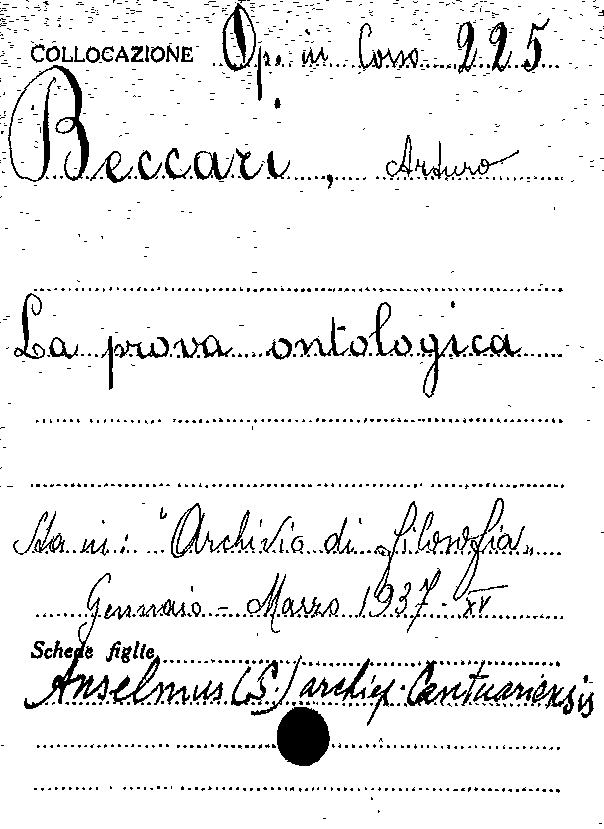 COLLOCAZIONE Op. in Corso 225
Beccari, Arturo
La prova ontologica
Sta in: "Archivio di filosofia„
Gennaio - Marzo 1937 - XV
Schede figlie
Anselmus (S.) archiep. Cantuariensis